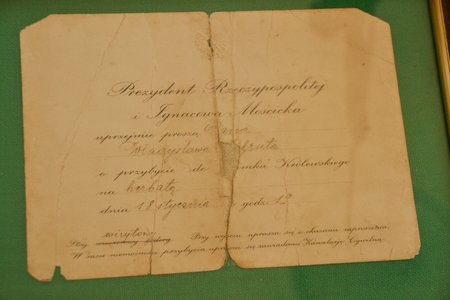 Prezydent Rzeczypospolitej
i Ignacowa Mościcka
uprzejmie proszą Pana
Władysława
o przybycie do Zamku Królewskiego
na herbatę
dnia 18 stycznia godz 18
wizytowy
Strój
Przy wejściu uprasza się o okazanie zaproszenia.
W razie niemożności przybycia uprasza się zawiadomić Kancelarię Cywilną.